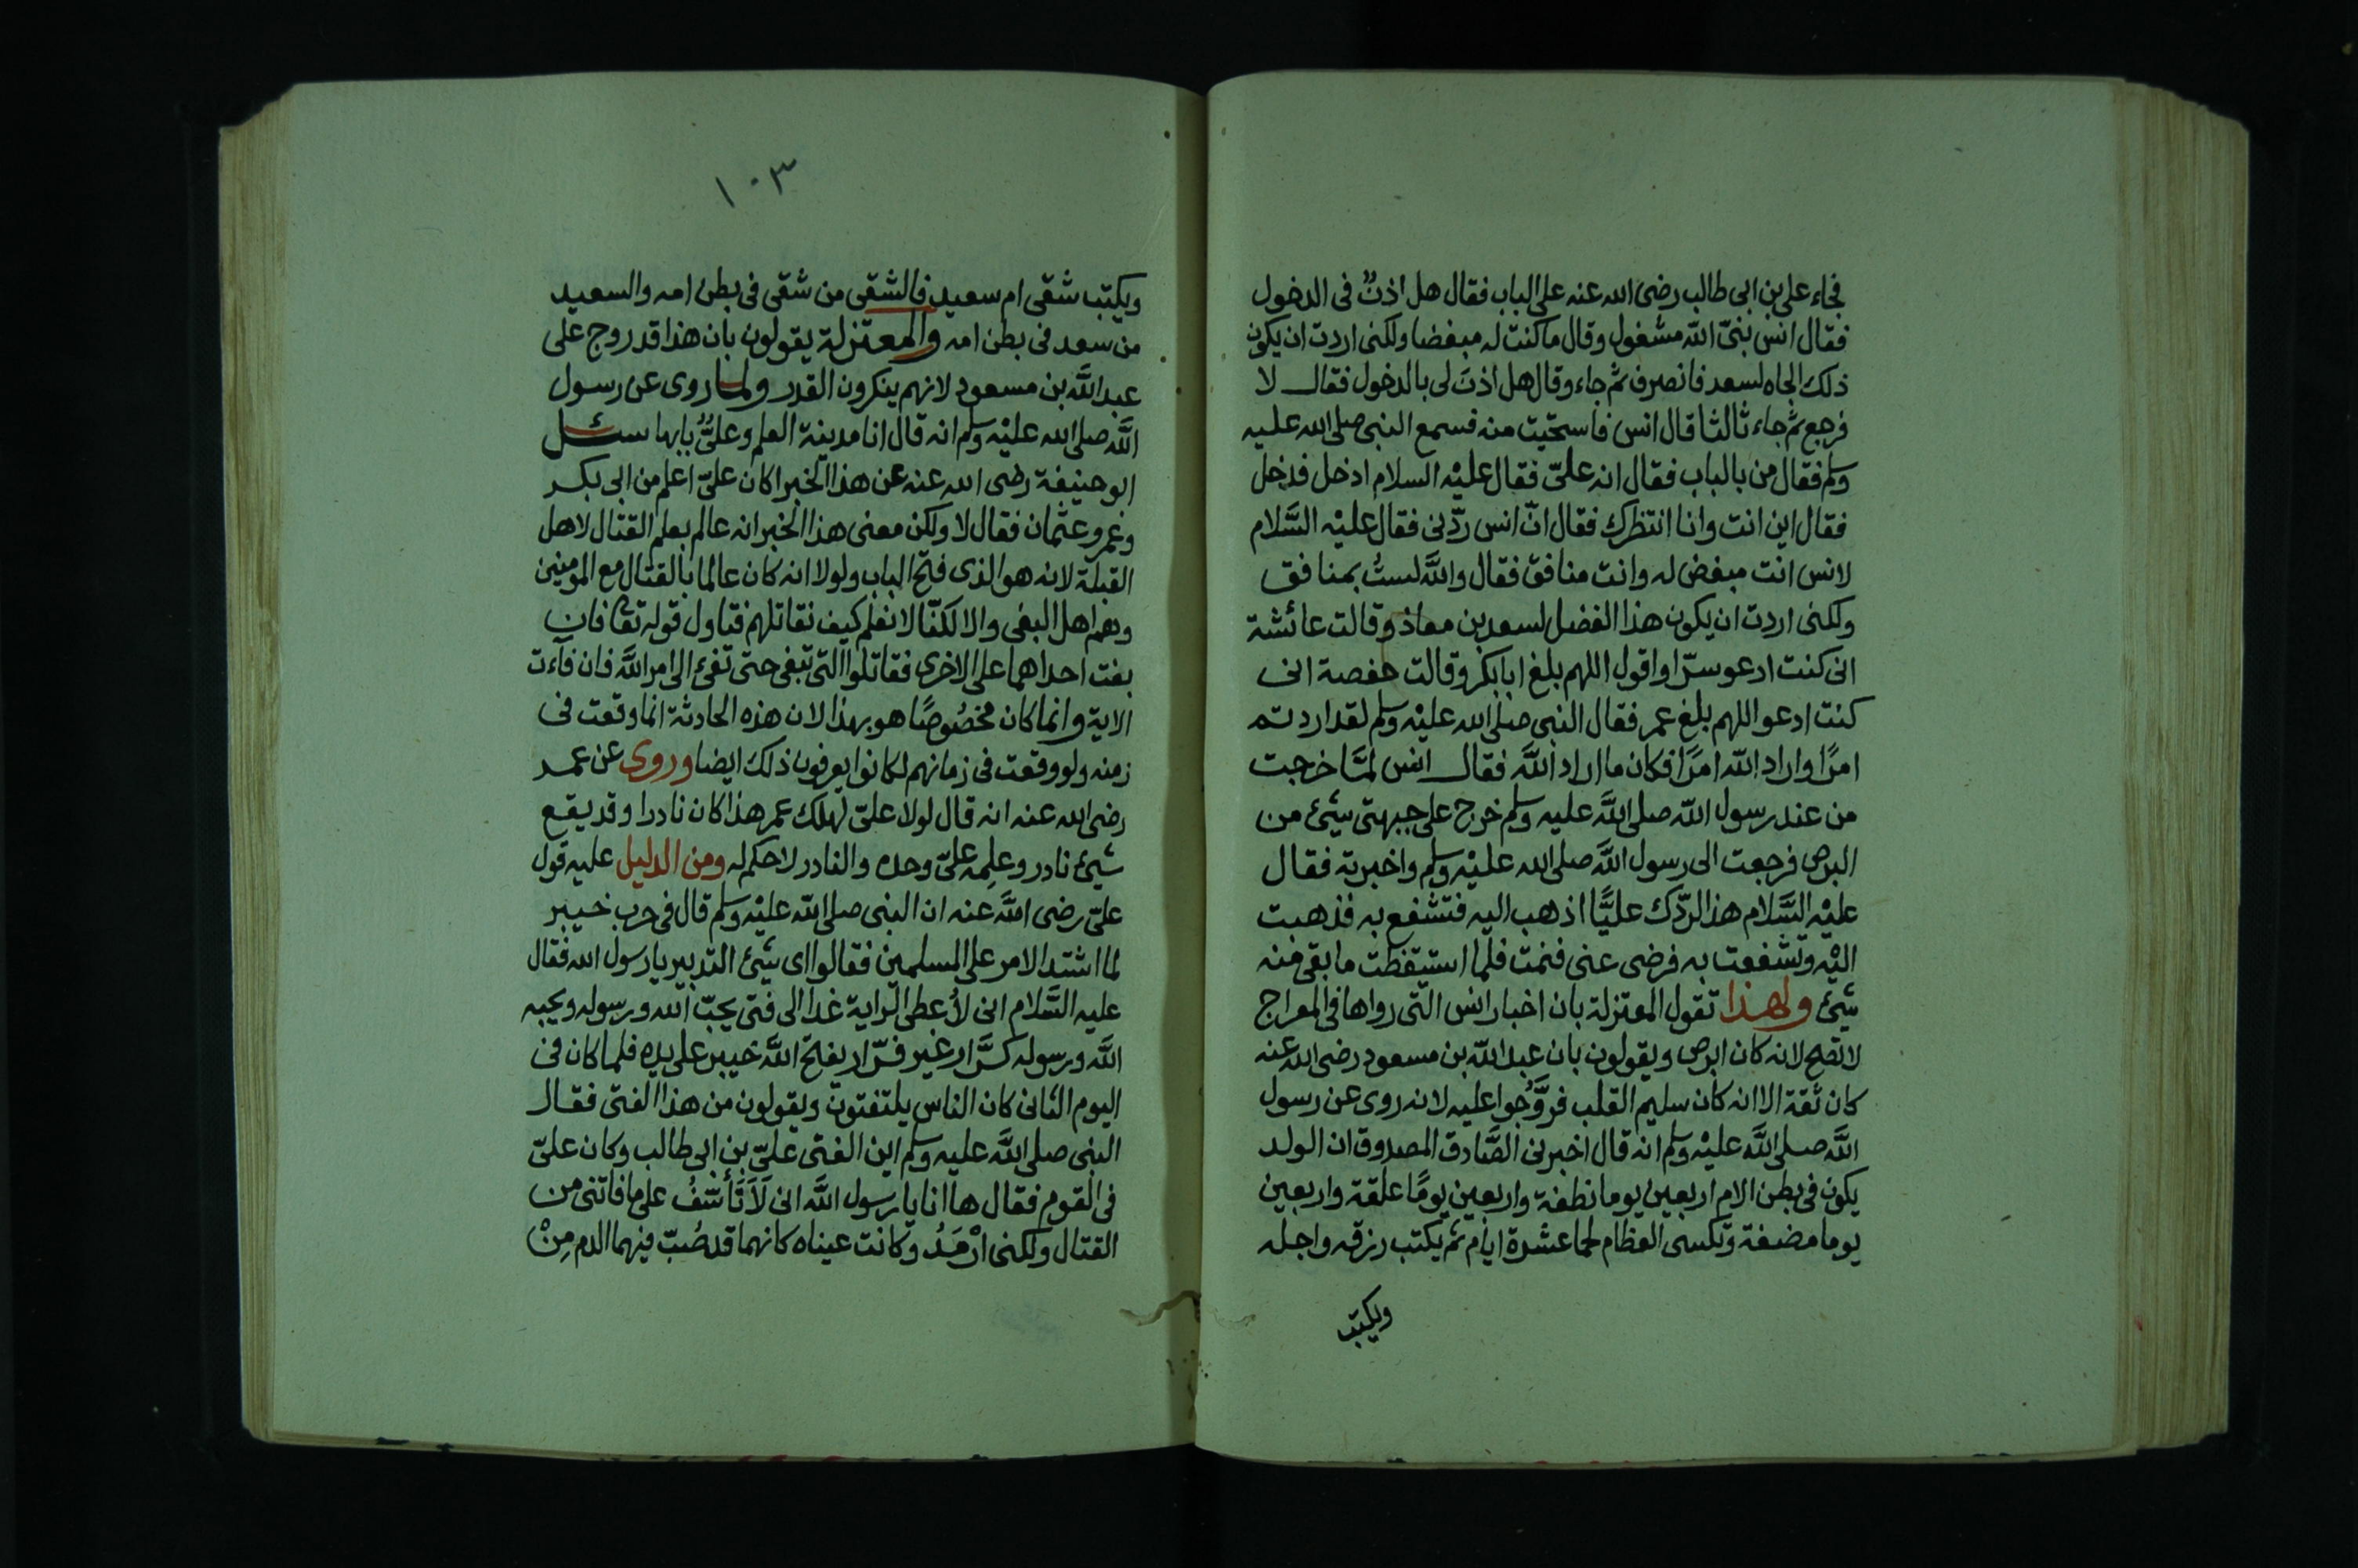 فجاء علي بن ابى طالب رضى الله عنه على الباب فقال هل اذنٌ فى الدخول
فقال انس بنىّ الله مشغول وقال ما كنت له مبغضا ولكنى اردت ان يكون
ذلك الجاه لسعد فانصرف ثم جاء وقال هل اذنَ لى بالدخول فقال لا
فرجع ثم جاء ثالثا قال انس فاستحيت منه فسمع النبى صلى الله عليه
وسلم فقال من بالباب فقال انه علىّ فقال عليْه السلام ادخل فدخل
فقال اين انت وانا انتظرك فقال انّ انس ردّنى فقال عليْه السَّلام
لانس انت مبغض له وانت منافق فقال واللَّه لستُ بمنافق
ولكنى اردت ان يكون هذا الفضل لسعد بن معاذ وقالت عائشة
انى كنت ادعو سرّا واقول اللهم بلغ ابابكر وقالت حفصة انى
كنت ادعو اللهم بلغ عمر فقال النبى صلى الله عليْه وسلم لقد اردتم
امرًا واراد الله امرًا فكان ما اراد اللَّه فقال انس لمَّا خرجت
من عند رسول الله صلى اللَّه عليه وسلم خرج على جبهتى شئ من
البرص فرجعت الى رسول اللَّه صلى الله عليْه وسلم واخبرته فقال
عليْه السَّلام هذا لردّك عليًّا اذهب اليه فتشفع به فذهبت
اليْه وتشفعت به فرضى عنى فنمت فلما استيقظت ما بقى منه
شئ ولهذا تقول المعتزلة بان اخبار انس التى رواها فى المعراج
لا تصح لانه كان ابرص ويقولون بان عبد الله بن مسعود رضى الله عنه
كان ثقة الا انه كان سليم القلب فروَّجُوا عليه لانه روى عن رسول
اللَّه صلى اللَّه عليْه وسلم انه قال اخبرنى الصَّادق المصدوق ان الولد
يكون فى بطن الام اربعين يوما نطفة واربعين يومًا علقة واربعين
يوما مضغة وتكسى العظام لحما عشرة ايام ثم يكتب رزقه واجله
ويكتب
١٠٣
ويكتب شقى ام سعيد فالشقى من شقى فى بطن امه والسعيد
من سعد فى بطن امه والمعتزلة يقولون بان هذا قد روج على
عبد اللَّه بن مسعود لانهم ينكرون القدر ولما روى عن رسول
اللَّه صلى الله عليْه وسلم انه قال انا مدينة العلم وعلىٌّ بابها سئل
ابو حنيفة رضى الله عنه عن هذا الخبر اكان علىّ اعلم من ابى بكر
وعمر وعثمان فقال لا ولكن معنى هذا الخبر انه عالم بعلم القتال لاهل
القبلة لانه هو الذى فتح الباب ولولا انه كان عالما بالقتال مع المؤمنين
وهم اهل البغى والا لكنّا لا نعلم كيف نقاتلهم فتاول قوله تعالى فان
بغت احداهما على الاخرى فقاتلوا التى تبغى حتى تفئ الى امر اللَّه فان فآءت
الاية وانما كان مخصُوصًا هو بهذا لان هذه الحادثة انما وقعت فى
زمنه ولو وقعت فى زمانهم لكانوا يعرفون ذلك ايضا وروى عن عمر
رضى الله عنه انه قال لولا علىّ لهلك عمر هذا كان نادرا وقد يقع
شئ نادر وعلِمه علىّ وحده والنادر لا حكم له ومن الدليل عليه قول
علىّ رضى اللَّه عنه ان النبى صلى الله عليْه وسلم قال فى حرب خيبر
لما اشتد الامر على المسلمين فقالوا اى شئ التدبير يا رسول الله فقال
عليه السَّلام انى لأُعطى الراية غدا الى فتى يحبّ الله ورسوله ويحبه
اللَّه ورسوله كرَّار غير فرّار يفتح اللَّه خيبر على يده فلما كان فى
اليوم الثانى كان الناس يلتفتون ويقولون من هذا الفتى فقال
النبى صلى اللَّه عليه وسلم اين الفتى علىّ بن ابى طالب وكان علىّ
فى القوم فقال ها انا يا رسول اللَّه انى لَاَتَأَسَّفُ على ما فاتنى من
القتال ولكنى اَرْمَدُ وكانت عيناه كانهما قد صُبّ فيهما الدم مِنْ